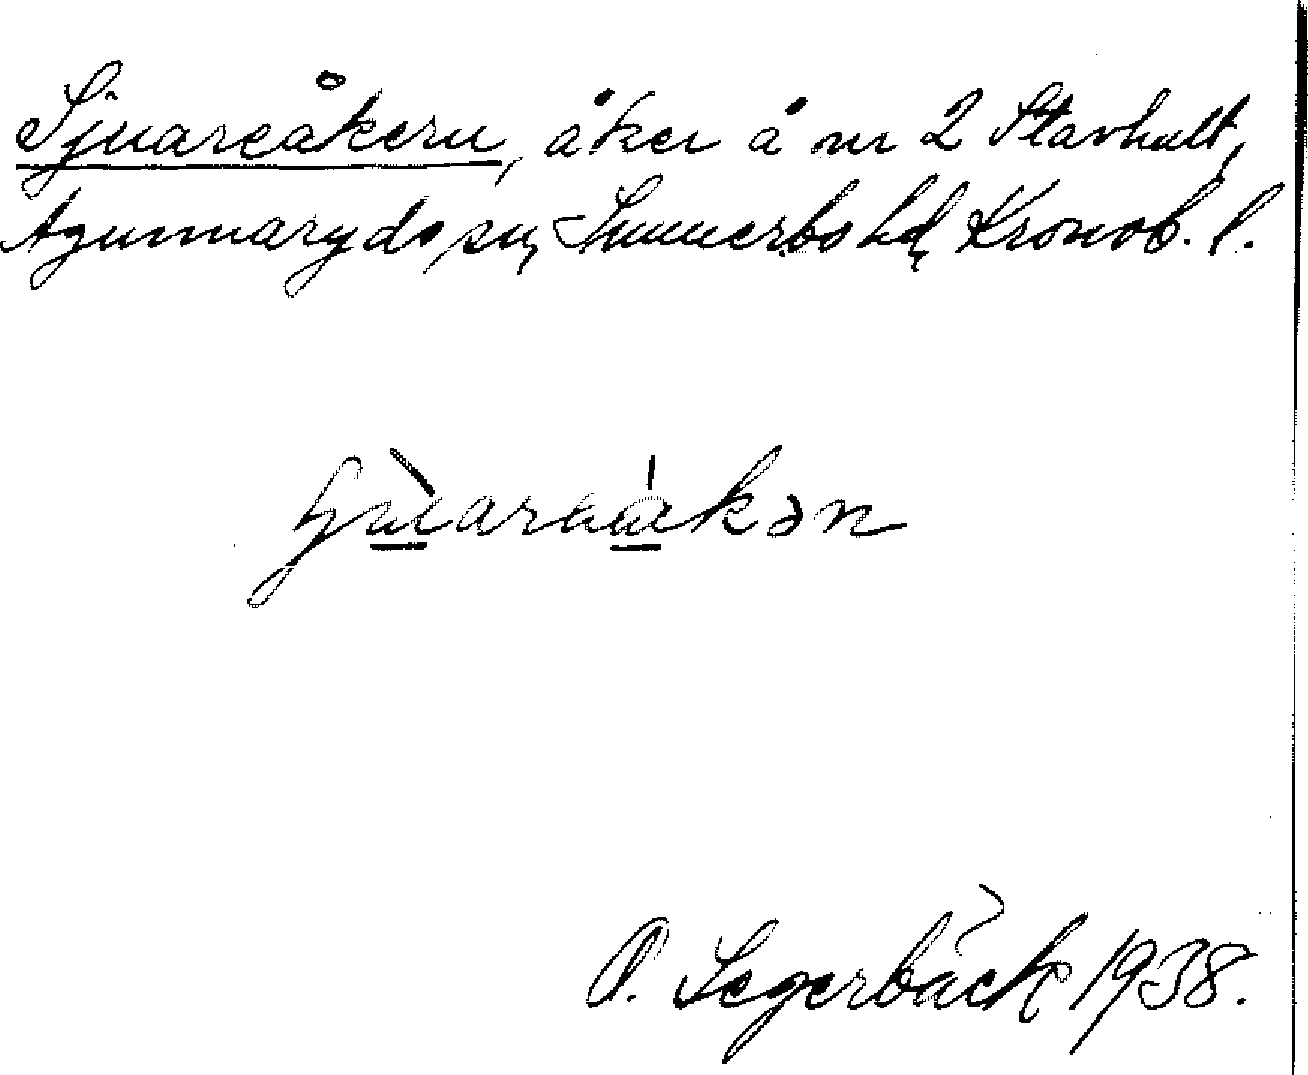 Sjuareåkern, åker å nr 2 Stavhult,
Agunnaryds sn, Sunnerbo hd, Kronob. l.
P. Segerbäck 1938.